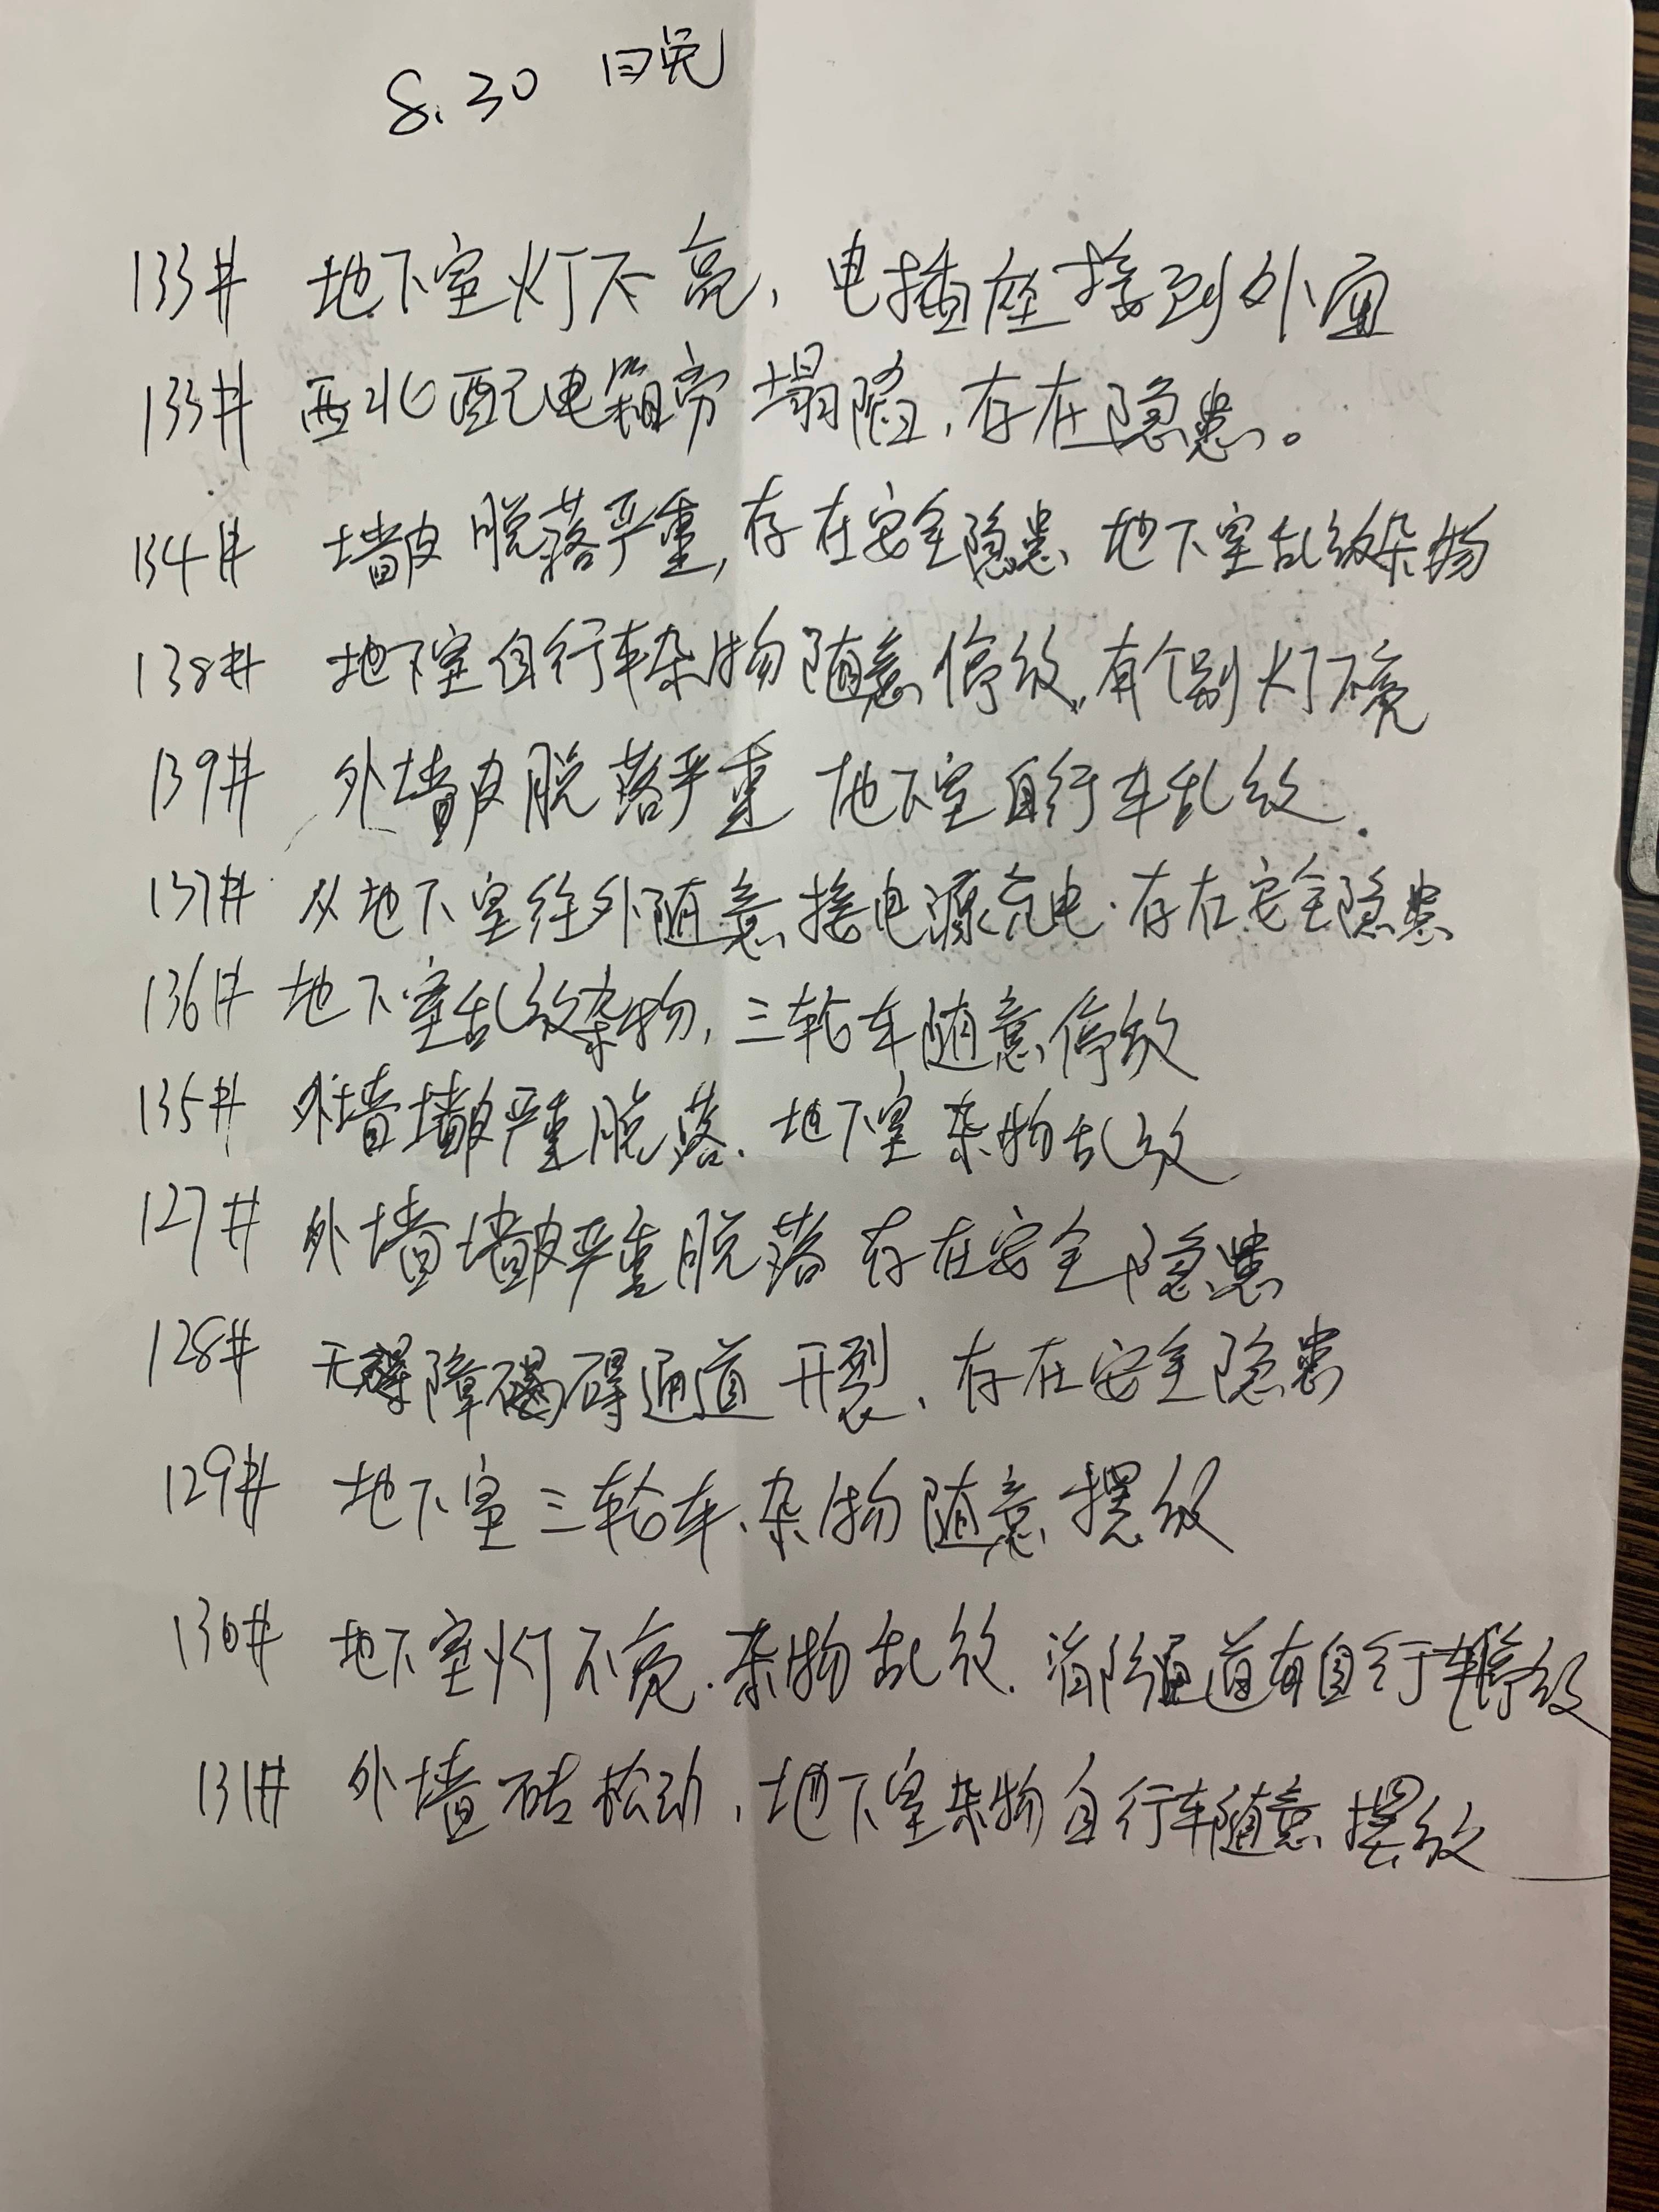 8.30 日晚
133# 地下室灯不亮，电插座接到外面
133# 西北配电箱旁塌陷，存在隐患。
134# 墙皮脱落严重，存在安全隐患、地下室乱放杂物
138# 地下室自行车杂物随意停放，有个别灯不亮
139# 外墙皮脱落严重 地下室自行车乱放.
137# 从地下室往外随意接电源充电.存在安全隐患
136# 地下室乱放杂物，三轮车随意停放
135# 外墙墙皮严重脱落.地下室杂物乱放
127# 外墙墙皮严重脱落 存在安全隐患
128# 无障碍通道开裂、存在安全隐患
129# 地下室三轮车、杂物随意摆放
130# 地下室灯不亮.杂物乱放.消防通道有自行车停放
131# 外墙砖松动、地下室杂物自行车随意摆放